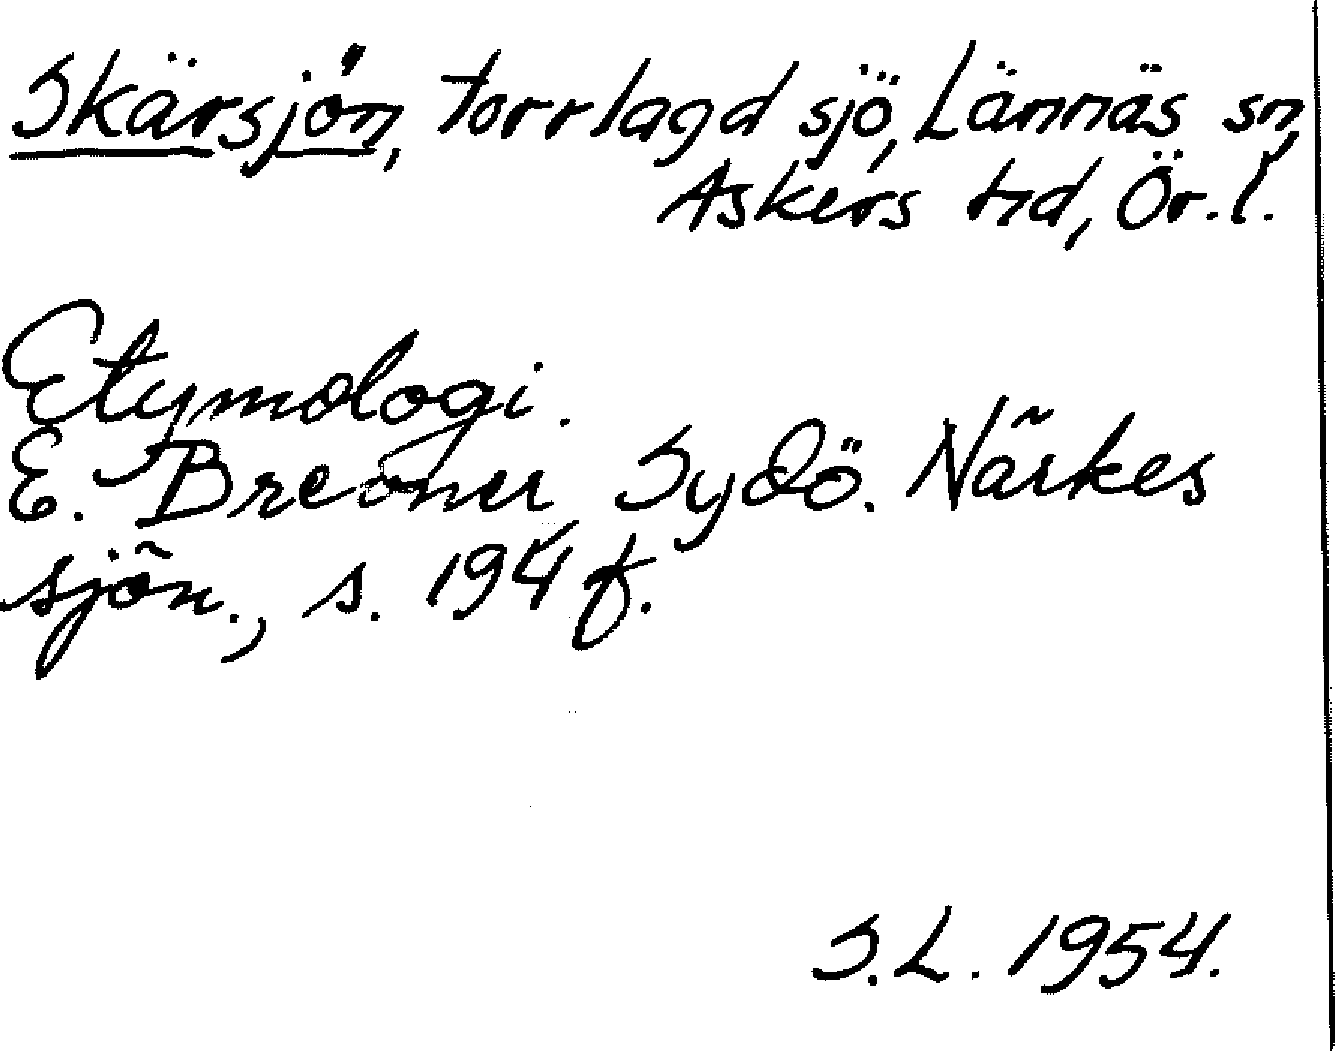 Skärsjön, torrlagd sjö, Lännäs sn,
Askers hd, Ör. l.
Etymologi.
E. Brevner, Sydö. Närkes
sjön., s. 194 f.
S.L. 1954.